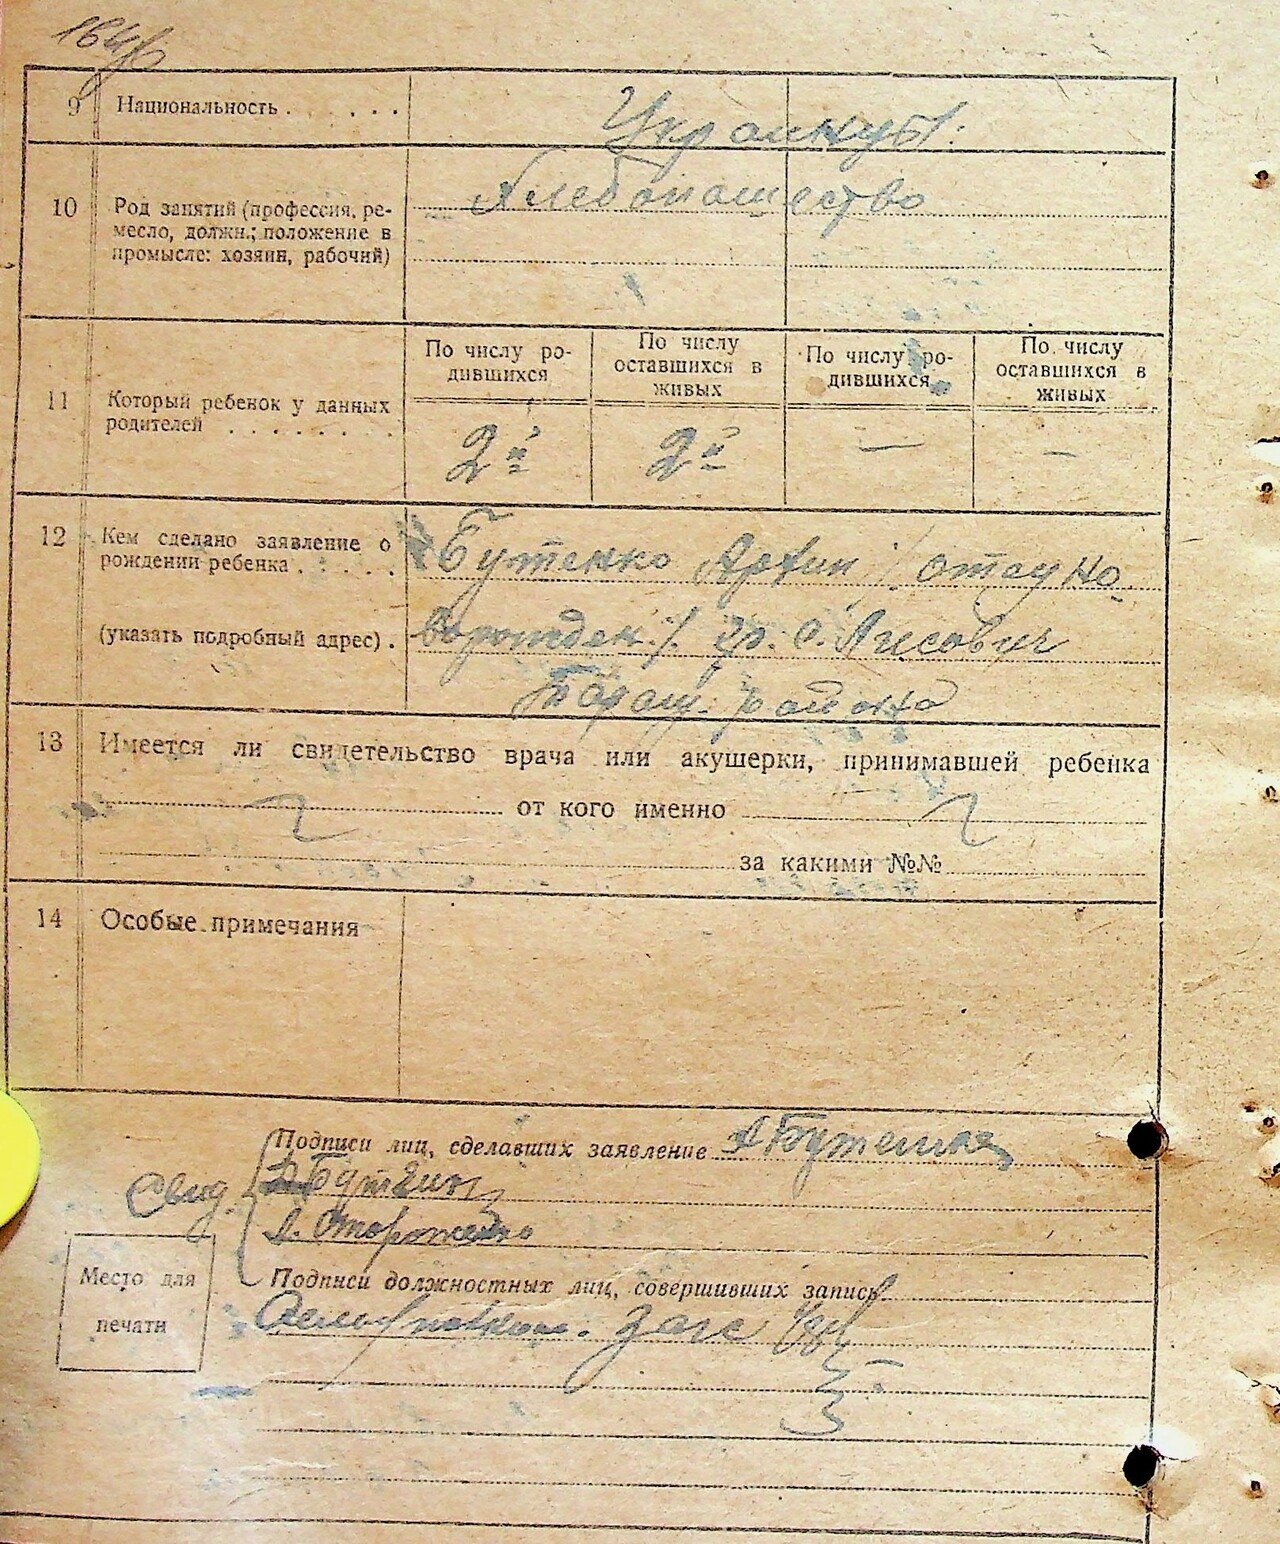 164
9 Национальность . . . . . Украинцы.
10 Род занятий (профессия, ре-
месло, должн.; положение в
промысле: хозяин, рабочий)
Хлебопашество
11 Который ребенок у данных
родителей . . . . . . . .
По числу ро-
дившихся
По числу
оставшихся в
живых
По числу ро-
дившихся
По числу
оставшихся в
живых
2й 2й — —
12 Кем сделано заявление о
рождении ребенка . . . . .
(указать подробный адрес) .
Бутенко Архип / отец но
ворожден. /. гр. с. Лисович
Таращ. района
13 Имеется ли свидетельство врача или акушерки, принимавшей ребенка
от кого именно
за какими №№
14 Особые примечания
Подписи лиц, сделавших заявление А Бутенко
Свид. Бутенко
А. Стороженко
Место для
печати
Подписи должностных лиц, совершивших запись
Загс